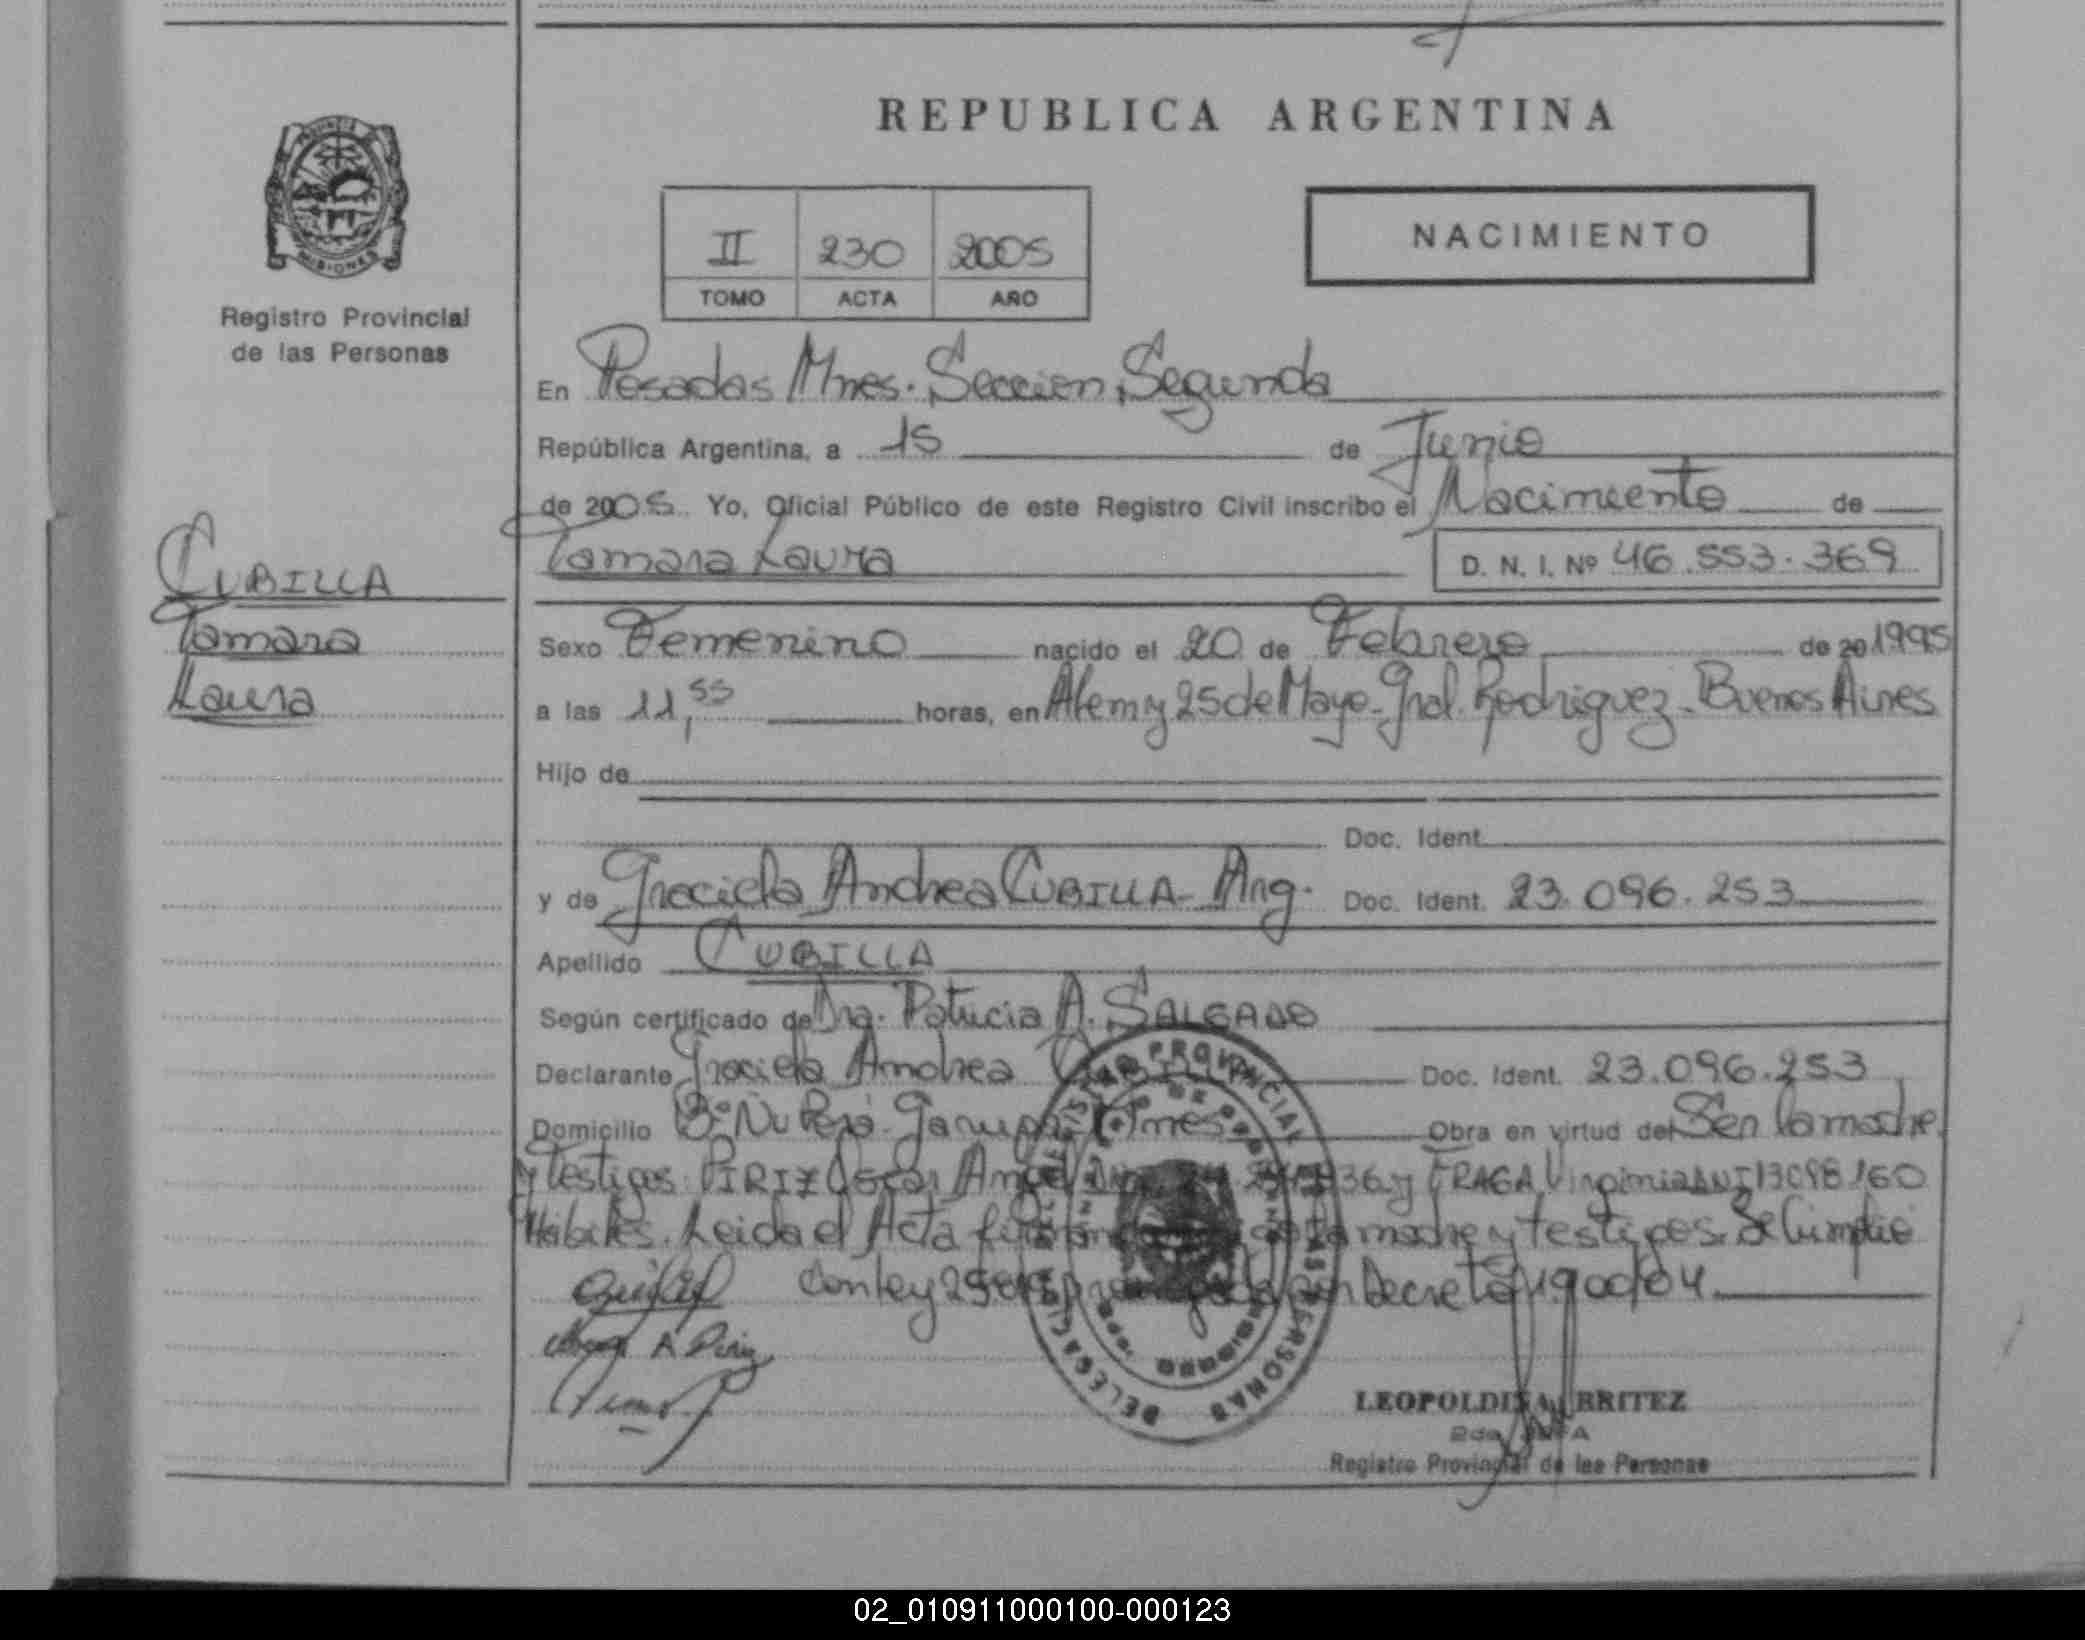 REPUBLICA ARGENTINA
PROVINCIA
MISIONES
Registro Provincial
de las Personas
II 230 2005
TOMO ACTA AÑO
NACIMIENTO
En Posadas Mnes. Sección Segunda
República Argentina, a 15 de Junio
de 2005 Yo, Oficial Público de este Registro Civil inscribo el Nacimiento de
Tamara Laura D. N. I. Nº 46.553.369
CUBILLA
Tamara
Laura
Sexo Femenino nacido el 20 de Febrero de 20 1995
a las 11,55 horas, en Alem y 25 de Mayo - Gral. Rodriguez - Buenos Aires
Hijo de
Doc. Ident.
y de Graciela Andrea CUBILLA - Arg. Doc. Ident. 23.096.253
Apellido CUBILLA
Según certificado de Dra. Patricia A. SALGADO
Declarante Graciela Andrea Doc. Ident. 23.096.253
Domicilio Bº Ñu Porá - Garupá Mnes Obra en virtud de Ser la madre
y Testigos: PIRIZ Oscar Angel y FRAGA Virginia DNI 13098160
Hábiles. Leida el Acta la madre y testigos. Se Cumplio
con ley por Decreto 1900/04
A Piriz
REGISTRO PROVINCIAL DE LAS PERSONAS
DELEGACION
LEOPOLDINA BRITEZ
2da JEFA
Registro Provincial de las Personas
02_010911000100-000123